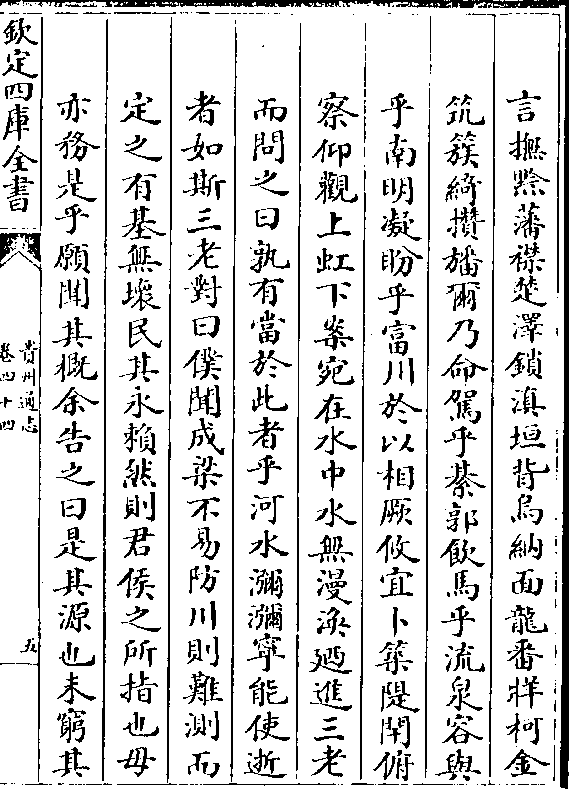 言撫黔藩襟楚澤鎖滇垣背烏納面龍番牂柯金
筑簇綺攢旛爾乃命駕乎綦郭飲馬乎流泉容與
乎南明凝盼乎富川於以相厥攸宜卜築隄閈俯
察仰觀上虹下案宛在水中水無漫渙廼進三老
而問之曰孰有當於此者乎河水瀰瀰寧能使逝
者如斯三老對曰僕聞成梁不易防川則難測而
定之有基無壞民其永賴然則君侯之所指也毋
亦務是乎願聞其概余告之曰是其源也未窮其
欽定四庫全書
貴州通志
卷四十四
五